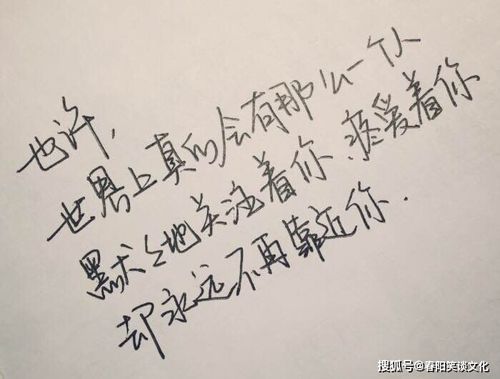 也许,
世界上真的会有那么一个人
默々地关注着你、疼爱着你
却永远不再靠近你.
搜狐号@春阳笑谈文化